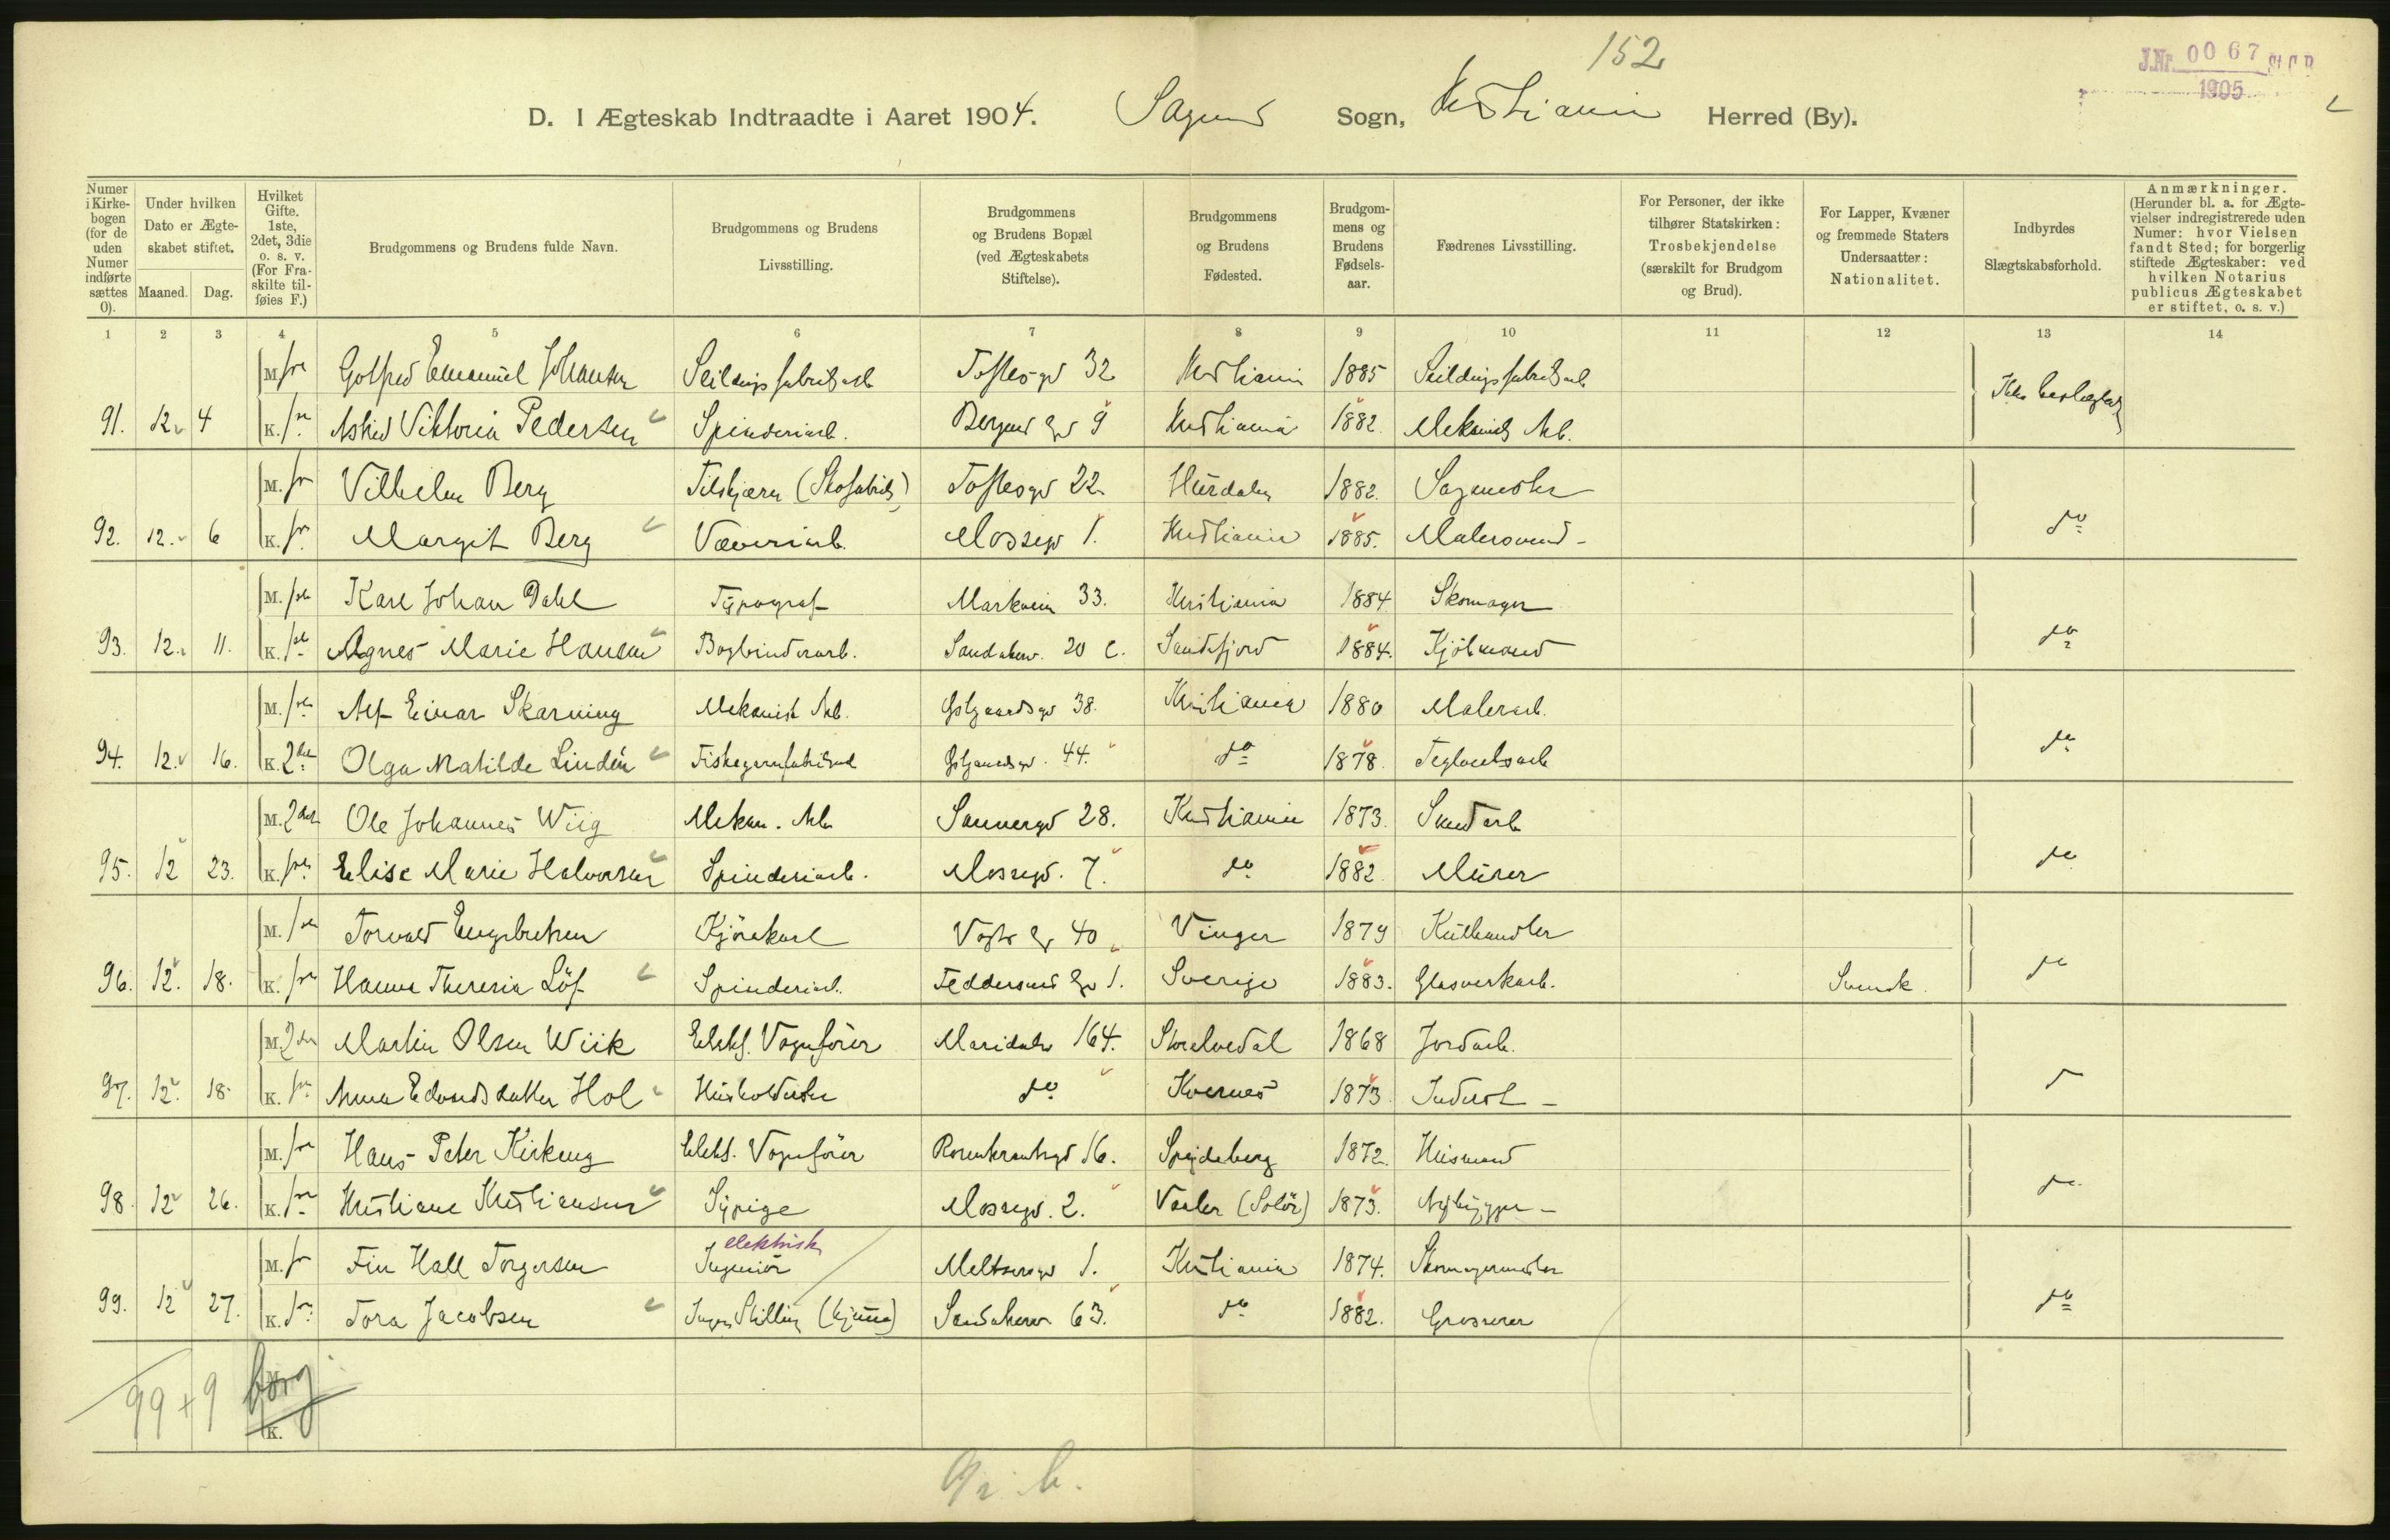 152
J.Nr. 0067 St.C.B.
1905
D. I Ægteskab Indtraadte i Aaret 1904. Sagenes Sogn, Kristiania Herred (By).
Numer i Kirkebogen (for de uden Numer indførte sættes 0).
Under hvilken Dato er Ægteskabet stiftet.
Maaned. Dag.
Hvilket Gifte. 1ste, 2det, 3die o. s. v. (For Fraskilte tilføies F.)
Brudgommens og Brudens fulde Navn.
Brudgommens og Brudens Livsstilling.
Brudgommens og Brudens Bopæl (ved Ægteskabets Stiftelse).
Brudgommens og Brudens Fødested.
Brudgommens og Brudens Fødselsaar.
Fædrenes Livsstilling.
For Personer, der ikke tilhører Statskirken: Trosbekjendelse (særskilt for Brudgom og Brud).
For Lapper, Kvæner og fremmede Staters Undersaatter: Nationalitet.
Indbyrdes Slægtskabsforhold.
Anmærkninger. (Herunder bl. a. for Ægtevielser indregistrerede uden Numer: hvor Vielsen fandt Sted; for borgerlig stiftede Ægteskaber: ved hvilken Notarius publicus Ægteskabet er stiftet, o. s. v.)
1 2 3 4 5 6 7 8 9 10 11 12 13 14
M. Golfred Emanuel Johansen Seildugsfabrikarb Toftesgd 32 Kristiania 1885 Seildugsfabrikarb
91. 12 4 K. Astrid Viktoria Pedersen Spinderiarb. Bergens gd 9 Kristiania 1882. Mekanisk Arb. Ikke beslægtet
M. Vilhelm Berg Tilskjærer (Skofabrik) Toftesgd 22 Hurdalen 1882. Sagmester
92. 12. 6 K. Margit Berg Væveriarb. Mossegd 1. Kristiania 1885. Malersvend do
M. Karl Johan Dahl Typograf Markveien 33. Kristiania 1884 Skomager
93. 12. 11. K. Agnes Marie Hansen Bogbinderarb. Sandakerv. 20 c. Sandefjord 1884. Kjøbmand do
M. Alf Einar Skarning Mekanisk Arb. 38. Kristiania 1880 Malerarb.
94. 12. 16. K. 2den Olga Matilde Lindén Fiskegarnfabrikarb 44. do 1878. Teglverksarb do
M. 2det Ole Johannes Wiig Mekan. Arb Sannergd 28. Kristiania 1873.
95. 12 23. K. Elise Marie Halvorsen Spinderiarb. Mossegd. 7. do 1882 Murer do
M. Torvald Engebretsen Kjørekarl Vogts gd 40 Vinger 1879 Kulhandler
96. 12. 18. K. Hanna Theresia Löf Spinderiarb. Feddersens gd 1. Sverige 1883. Glasverkarb. Svensk. do
M. 2den Martin Olsen Wiik Elekt. Vognfører Maridalsv 164. Storelvedal 1868 Jordarb.
97. 12. 18. K. Anna Edvardsdatter Hol Husholderske do Kvernes 1873. Inderst
M. Hans Peter Kirkeng Elekt. Vognfører Rosenkrantzgd 16. Spydeberg 1872. Husmand
98. 12 26. K. Kristiane Kristiansen Sypige Mossegd. 2. Vaaler (Solør) 1873. Nybygger do
M. Fin Hall Torgersen elektrisk Ingeniør Meltzersgd 1. Kristiania 1874. Skomagermester
99. 12 27. K. Tora Jacobsen Ingen Stilling (hjeme) Sandakerv 63. do 1882. Grosserer do
99 + 9 borg
M.
K.